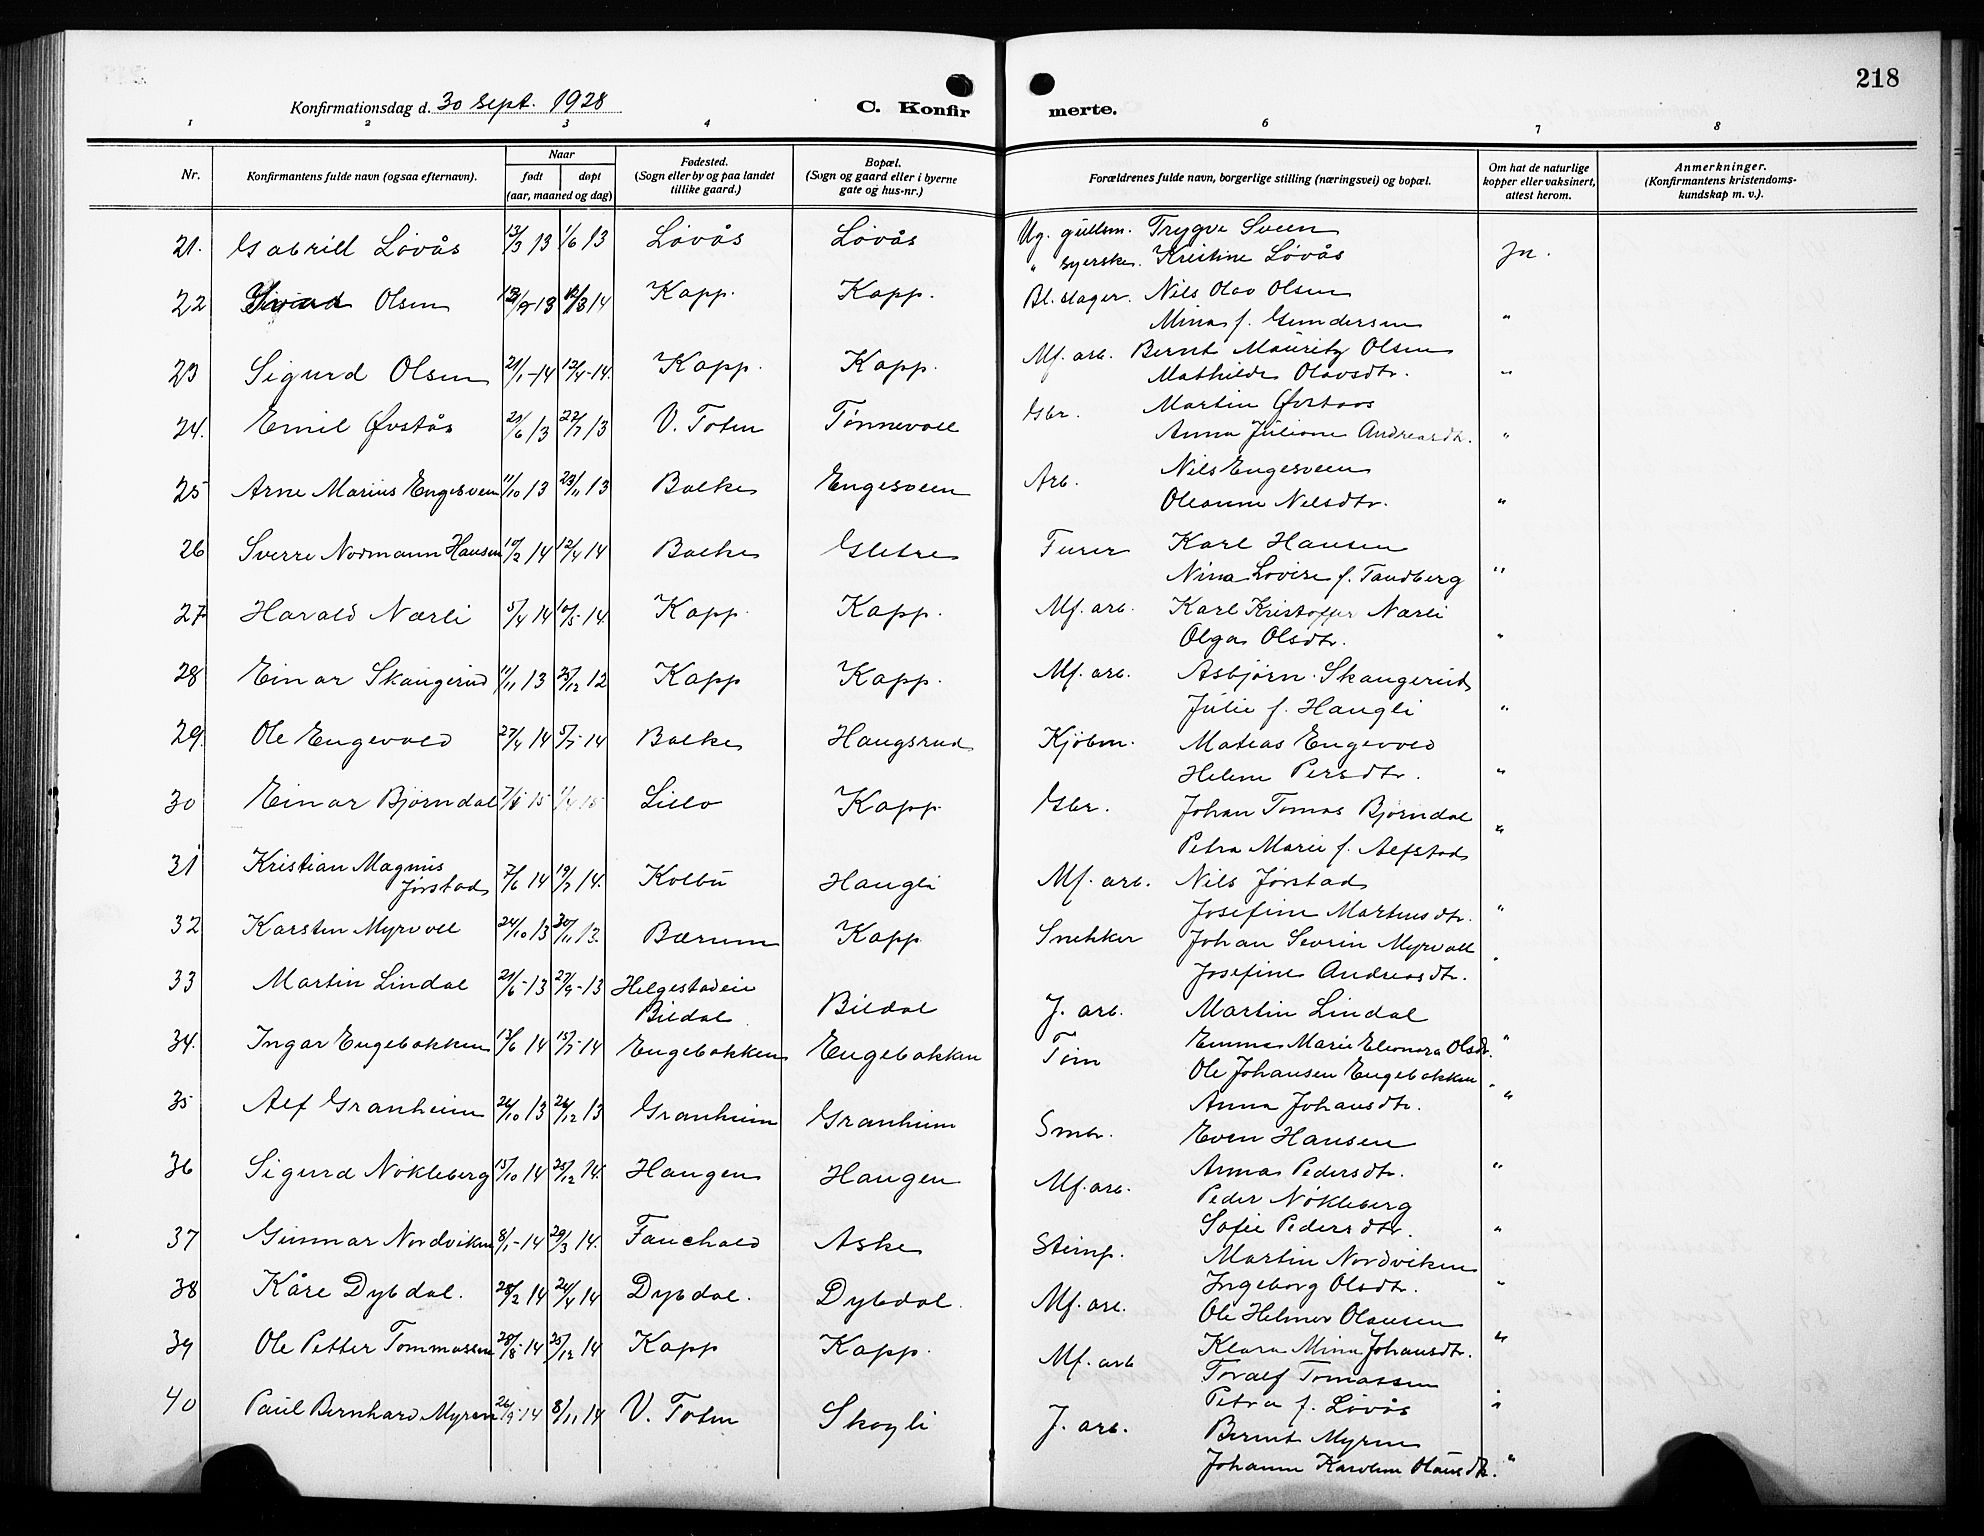 218
Konfirmationsdag d. 30 sept. 1928 C. Konfir merte.
1 2 3 4 5 6 7 8
Nr. Konfirmantens fulde navn (ogsaa efternavn). Naar født døpt (aar, maaned og dag) Fødested. (Sogn eller by og paa landet tillike gaard.) Bopæl. (Sogn og gaard eller i byerne gate og hus-nr.) Forældrenes fulde navn, borgerlige stilling (næringsvei) og bopæl. Om hat de naturlige kopper eller vaksinert, attest herom. Anmerkninger. (Konfirmantens kristendoms-kundskap m. v.).
21. Gabriel Løvås 13/3 13 1/6 13 Løvås Løvås Ug. gullsm. Trygve Sveen
" syerske. Kristine Løvås Ja.
22 Olsen Kapp. Kapp. Bl.slager. Nils Olav Olsen
Mina f. Gundersen "
23 Sigurd Olsen 21/1-14 13/4-14. Kapp. Kapp. Mf. arb. Bernt Mauritz Olsen
Mathilde Olavsdtr. "
24. Emil Øvstås 21/6 13 22/7 13 V. Toten Tønnevoll Gbr. Martin Øvstaas
Anna Juliane Andreasdtr. "
25 Arne Marius Engesveen 11/10 13 23/11 13 Balke Engesveen Arb. Nils Engesveen
Oleanne Nilsdtr. "
26 Sverre Normann Hansen 10/2 14 12/4 14 Balke Gletre Furer Karl Hansen
Nina Lovise f. Tandberg "
27 Harald Nærli 5/4 14 10/5-14. Kapp. Kapp. Mf. arb. Karl Kristoffer Nærli
Olga Olsdtr. "
28 Einar Skaugerud 11/11 13 25/12 12 Kapp Kapp. Mf. arb. Asbjørn Skaugerud
Julie f. Haugli "
29. Ole Engevold 27/4 14 5/7-14 Balke Haugsrud Kjøbm. Matias Engevold
Helene Persdtr. "
30 Einar Bjørndal Lillo Kapp. Gbr. Johan Tomas Bjørndal
Petra Marie f. Alfstad "
31 Kristian Magnus
Jørstad 7/6 14 19/7 14. Kolbu Haugli Mf. arb. Nils Jørstad
Josefine Martinusdtr. "
32 Karsten Myrvoll 24/10 13 30/11 13. Bærum Kapp Snekker Johan Sevrin Myrvoll
Josefine Andreasdtr. "
33 Martin Lindal 21/6-13 27/9-13 Helgestadeie
Bildal Bildal J. arb. Martin Lindal
Emma Marie Eleonora Olsdtr. "
34. Ingar Engebakken 13/6 14 15/7-14 Engebakken Engebakken Tøm Ole Johansen Engebakken
Anna Johansdtr. "
35 Alf Granheim 26/10 13 26/12 13 Granheim Granheim Smbr. Even Hansen
Anna Pedersdtr. "
36 Sigurd Nøkleberg 15/10 14 25/12 14. Haugen Haugen Mf. arb. Peder Nøkleberg
Sofie Pedersdtr. "
37 Gunnar Nordviken 8/1-14 29/3 14. Fauchald Aske Stenip. Martin Nordviken
Ingeborg Olsdtr. "
38 Kåre Dybdal. 25/2 14 24/4 14 Dybdal. Dybdal. Mf. arb. Ole Helmer Olausen
Klara Mina Johansdtr. "
39 Ole Petter Tommassen 28/8-14 25/12 14 Kapp Kapp. Mf. arb Toralf Tomassen
Petra f. Løvås "
40 Paul Bernhard Myren 26/9-14 8/11 14 V. Toten Skogli J. arb. Bernt Myren
Johanne Karoline Olausdtr. "